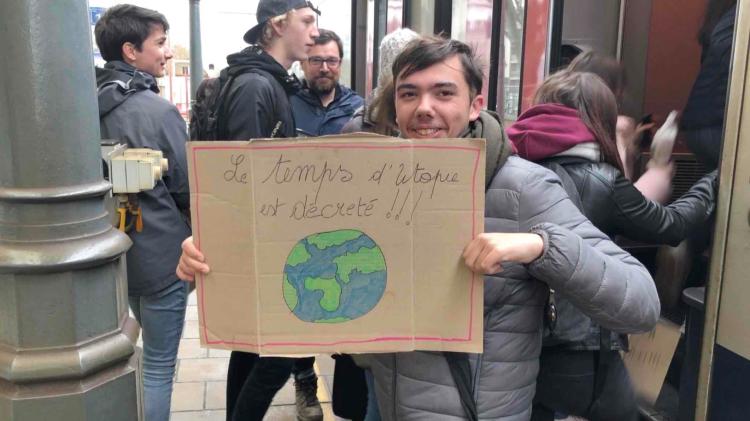 Le temps d'Utopie
est décreté !!!